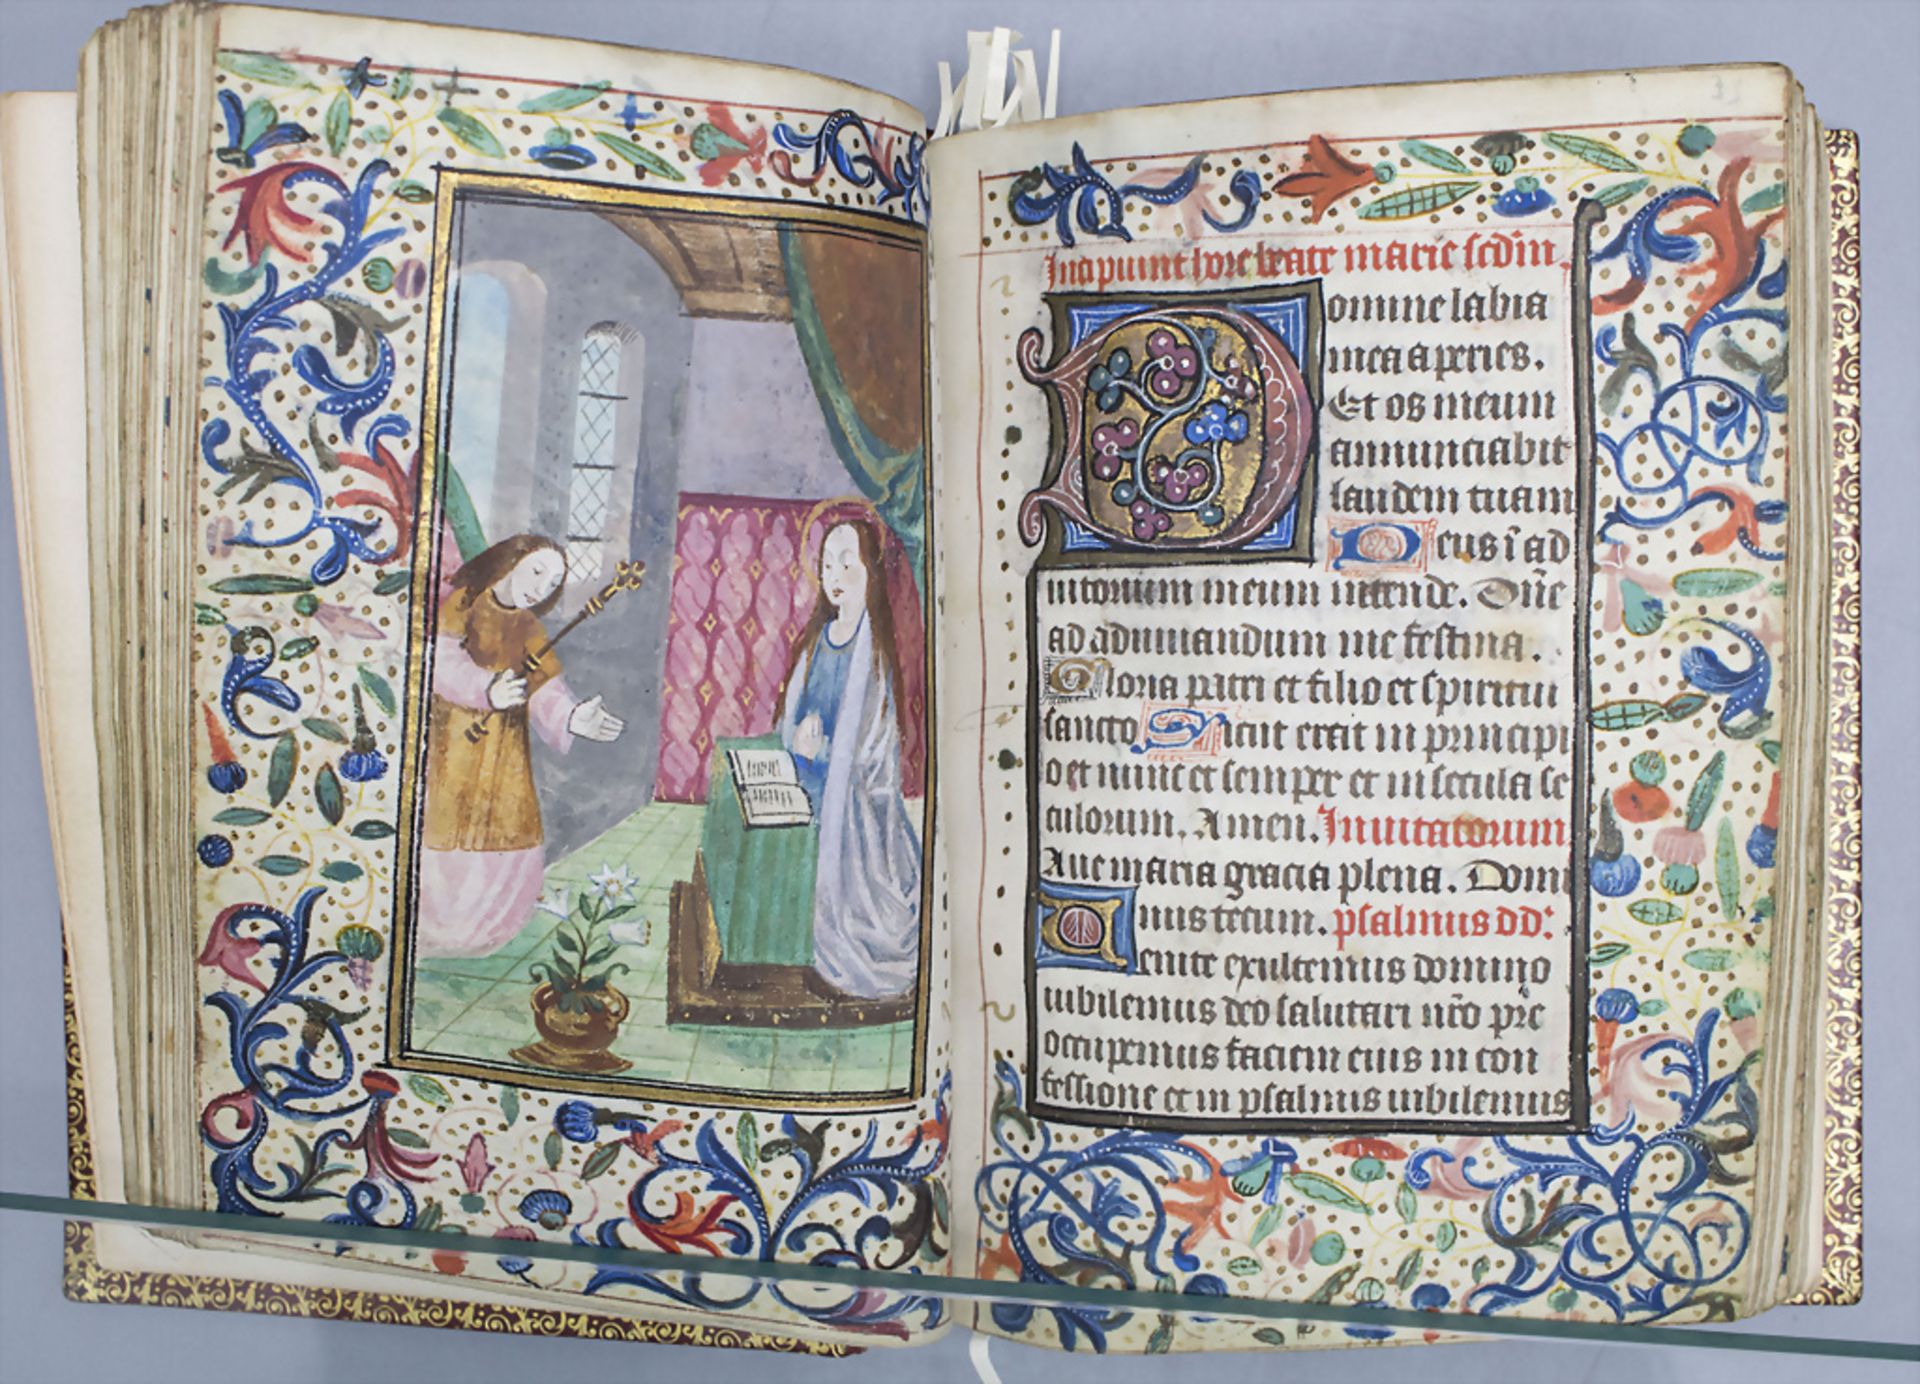 Incipiunt hore beate marie scdm
Domine labia
mea aperies.
Et os meum
annunciabit
laudem tuam
Deus i ad
iutorium meum intende. Dne
ad adiuuandum me festina.
Gloria patri et filio et spiritui
sancto Sicut erat in principi
o et nunc et semper et in secula se
culorum. Amen. Inuitatorium
Aue maria gracia plena. Domi
nus tecum. psalmus dd.
Uenite exultemus domino
iubilemus deo salutari nro pre
occupemus faciem eius in con
fessione et in psalmus iubilemus